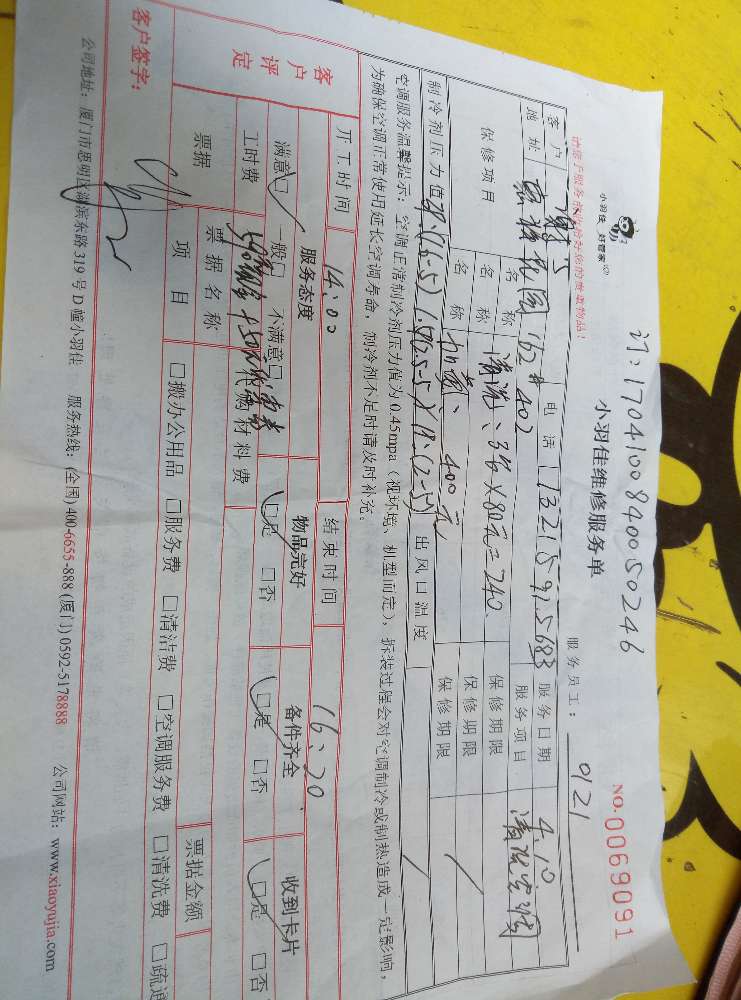 订:17041008400050246
小羽佳 好管家
小羽佳维修服务单
NO.0069091
请您于服务前收拾好您的贵重物品!
服务员工: 0121
客户
电话 服务日期 4.10
地址 162# 402 服务项目 清洗空调
保修项目 名称 清洗、3台×80元=240 保修期限
名称 加氟、400元 保修期限
名称 保修期限
制冷剂压力值 出风口温度
空调服务温馨提示:空调正常制冷剂压力值为0.45mpa(视环境、机型而定),拆装过程会对空调制冷或制热造成一定影响,
为确保空调正常使用延长空调寿命,制冷剂不足时请及时补充。
开工时间 14:00 结束时间 16:20
客户评定
服务态度 物品完好 备件齐全 收到卡片
满意□ 一般□ 不满意□ □是 □否 □是 □否 □是 □否
工时费 代购材料费
票据 票据名称 票据金额
项目 □搬办公用品 □服务费 □清洁费 □空调服务费 □清洗费 □疏通
客户签字:
公司地址:厦门市思明区湖滨东路319号D幢小羽佳 服务热线:(全国)400-6655-888 (厦门)0592-5178888 公司网站:www.xiaoyujia.com